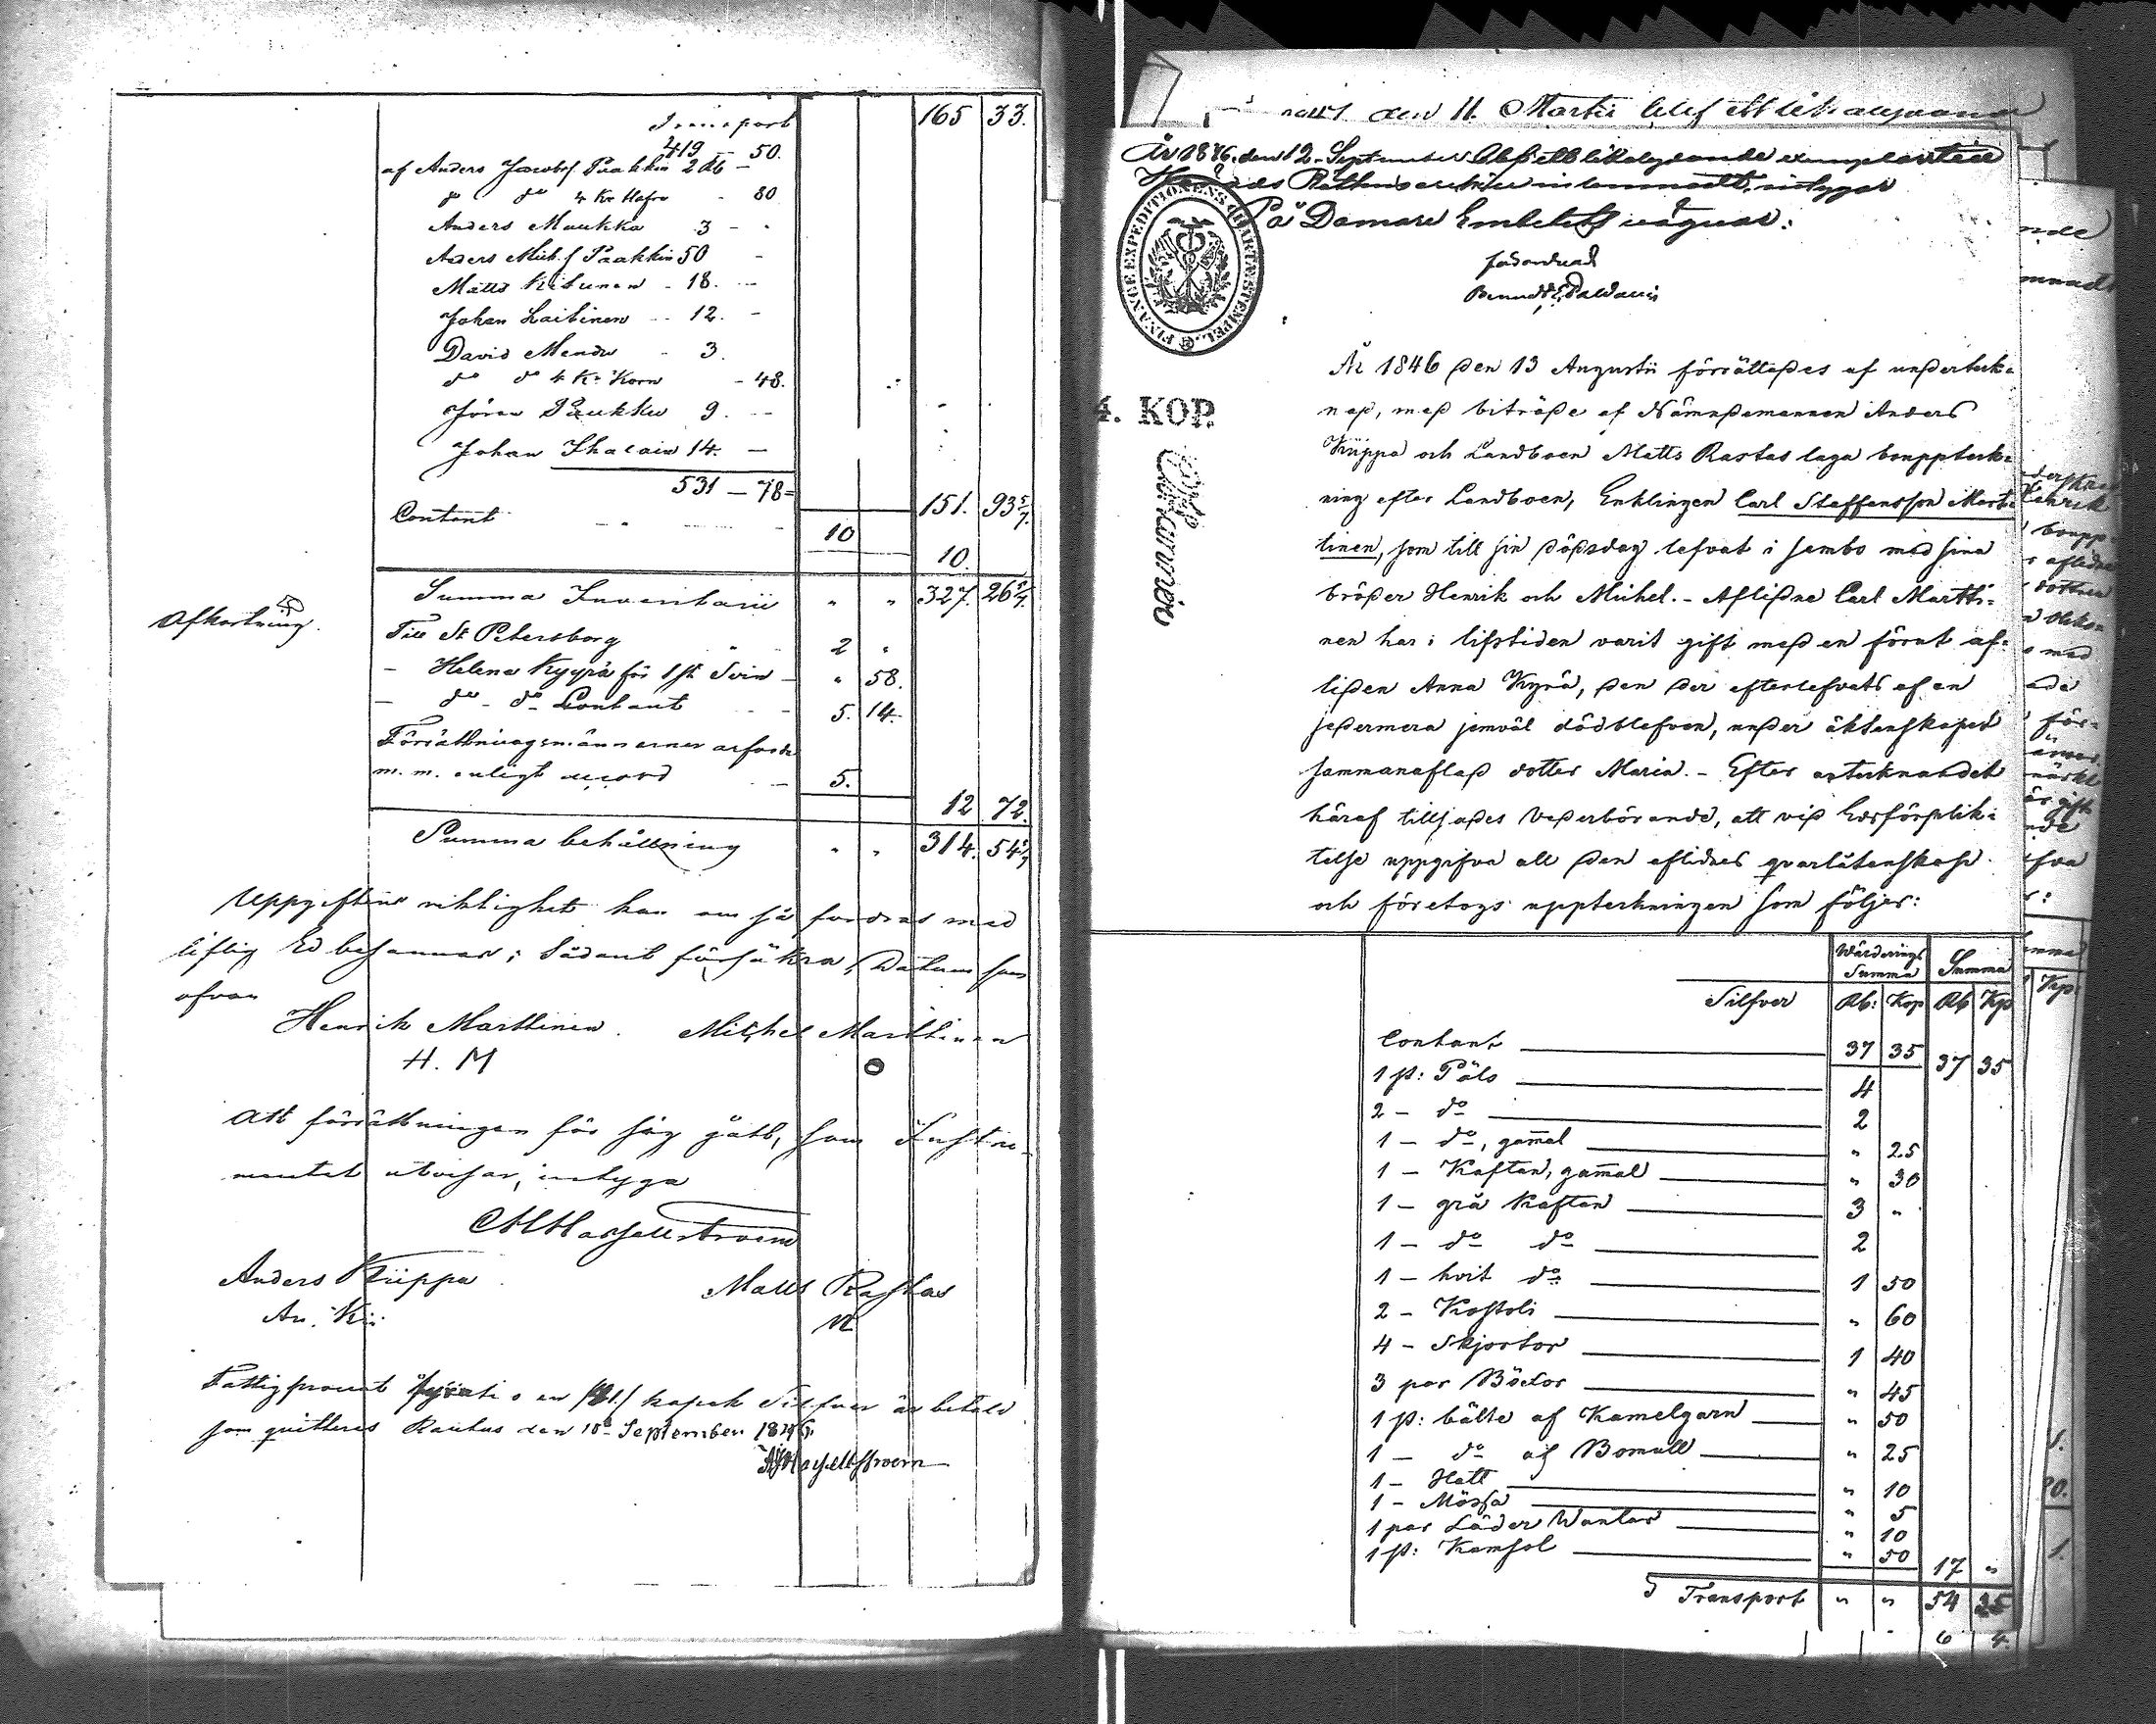 Transport 165 33.
419 – 50.
af Anders Jacobsf Paakkin 2 Rb –
do do 4 Kr Hafra - 80
Anders Muukka 3 - -
Anders Mich.f Paakkin 50 -
Matts Kiiunen - 18. -
Johan Laitinen - 12. -
David Mendu - 3.
do do 4 Kr Korn - 48.
Jöran Paukku 9. -
Johan Ihalain 14. -
531 – 78
151. 93 5/7.
Contant 10
10.
Summa Inventarii " " 327. 26 5/7.
Afkortning.
Till St Petersborg 2 "
– Helena Kyyrä för 1 st Svin – " 58.
– do – do Contant 5. 14.
Förrättningsmännernes arfvode
m. m. enligt accord – 5.
12 72.
Summa behållning " " 314. 54 5/7
Uppgiftens riktighet kan om så fordras med
liflig Ed besannas; Sådant försäkra, Datum som
ofvan
Henrik Marttinen. Michel Marttinen
H. M O
Att förrättningen för sig gått, som Instru-
mentet utvisar, intyga
Anders Kiippa Matts Rastas
An. Ki:
Fattigprocent fyratio en /41/ kopek Silfver är betald
som quitteras Rautus den 10 September 1846.
den 11. Martii blef ett likalydande
År 1846. den 12. September blef ett likalydande exemplar till
Härads Rättens archiv inlemnadt, intygar
På Domare Embetets vägnar:
FINANCE EXPEDITIONENS CHARTÆ STEMPEL
4. KOP.
År 1846 den 13 Augusti förrättades af underteck-
nad, med biträde af Nämndemannen Anders
Kiippa och Landboen Matts Rastas laga bouppteck-
ning efter Landboen, Enklingen Carl Staffansson Mart-
tinen, som till sin dödsdag lefvat i sambo med sina
bröder Henrik och Michel. – Aflidne Carl Martti-
nen har i lifstiden varit gift med en förut af-
liden Anna Kyyrä, den der efterlefvats af en
sedermera jemväl dödblefven, under äktenskapet
sammanaflad dotter Maria. – Efter antecknandet
häraf tillsades vederbörande, att vid Edsförplik-
telse uppgifva all den aflidnes qvarlåtenskap
och företogs uppteckningen som följer:
Wärderings Summa Summa
Silfver Rb: Kop Rb Kp
Contant 37 35 37 35
1 st: Päls 4
2 – do 2
1 – do, gammal " 25
1 – Kaftan, gammal " 30
1 – grå Kaftan 3 "
1 – do do 2
1 – hvit do 1 50
2 – Kostoli " 60
4 – Skjortor 1 40
3 par Böxor " 45
1 st: bälte af Kamelgarn " 50
1 – do af Bomull " 25
1 – Hatt " 10
1 – Mössa " 5
1 par Läder Wantar " 10
1 st: Kamsol " 50 17 "
Transport " " 54 35